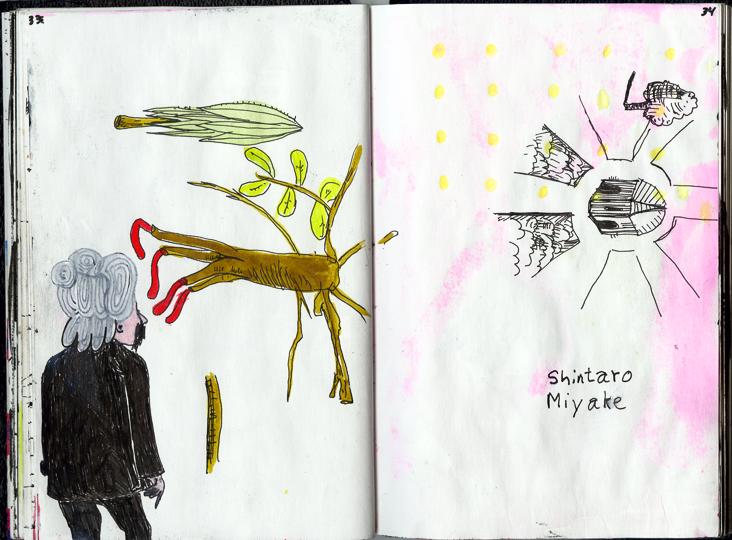 33
34
Shintaro
Miyake